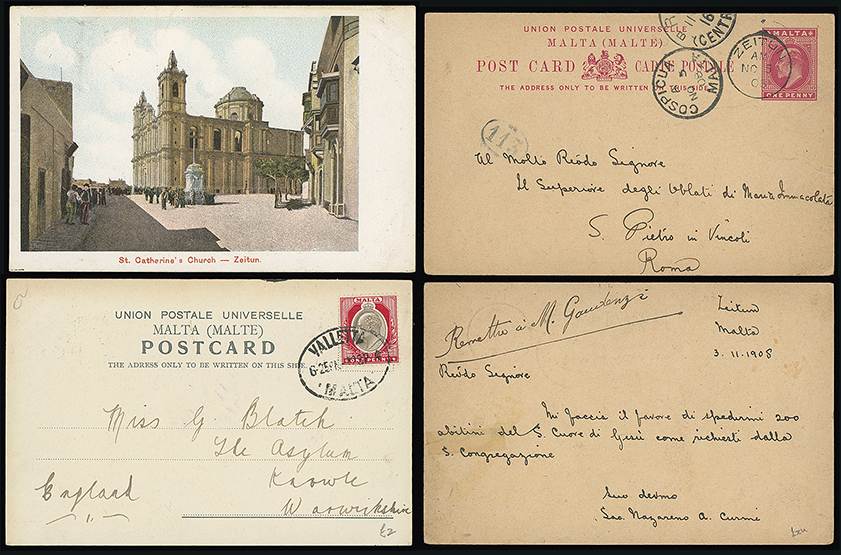 St. Catherine's Church — Zeitun.
UNION POSTALE UNIVERSELLE
MALTA (MALTE)
POST CARD CARTE POSTALE
THE ADDRESS ONLY TO BE WRITTEN ON THIS SIDE.
MALTA
ONE PENNY
ZEITUN
AM
NO
COSPICUA
MALTA
113
Al Molto Revdo Signore
Il Superiore degli Oblati di Maria Immacolata
S. Pietro in Vincoli
Roma
UNION POSTALE UNIVERSELLE
MALTA (MALTE)
POSTCARD
THE ADDRESS ONLY TO BE WRITTEN ON THIS SIDE.
MALTA
ONE PENNY
VALLETTA
MALTA
Miss G. Blatch
The Asylum
Knowle
England
Warwickshire
£2
Remetto a M. Gaudenzi
Zeitun
Malta
3. 11. 1908
Revdo Signore
Mi faccia il favore di spedirmi 200
abitini del S. Cuore di Gesù come richiesti dalla
S. Congregazione
Suo devmo
Sac. Nazareno A. Curmi